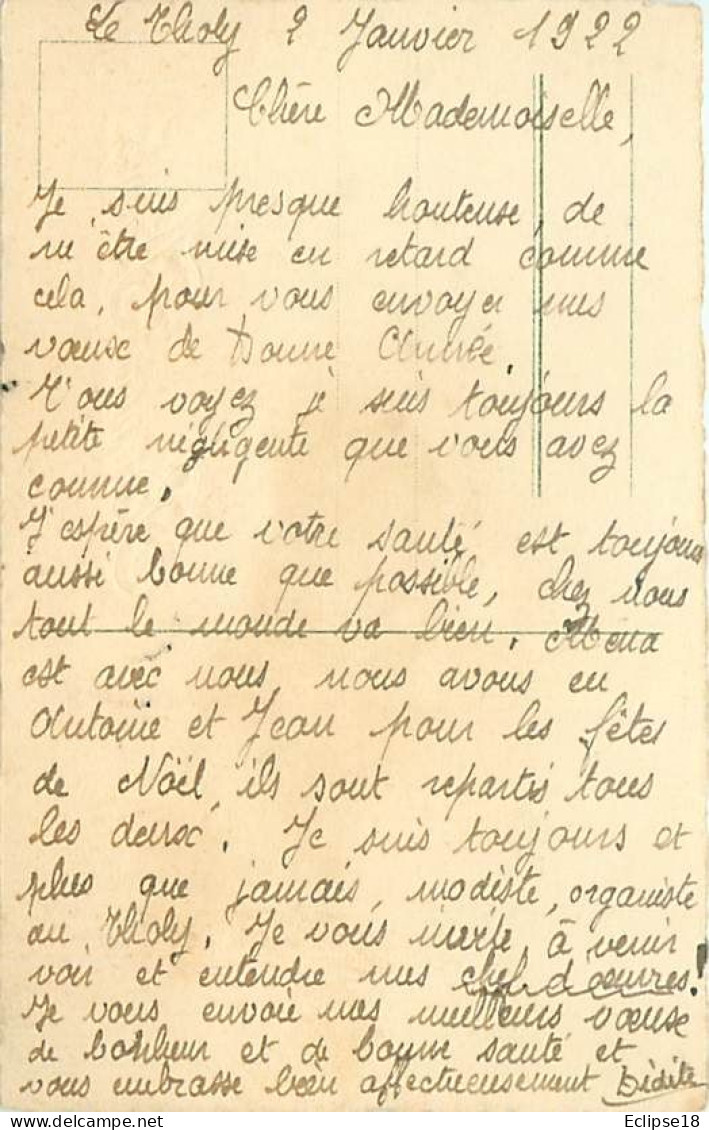 Le Tholy 2 Janvier 1922
Chère Mademoiselle,
Je suis presque honteuse, de
m'être mise en retard comme
cela, pour vous envoyer mes
vœux de Bonne Année.
Vous voyez je suis toujours la
petite négligente que vous avez
connue.
J'espère que votre santé est toujours
aussi bonne que possible, chez nous
tout le monde va bien.
est avec nous, nous avons eu
Antoine et Jean pour les fêtes
de Noël, ils sont repartis tous
les deux. Je suis toujours et
plus que jamais, modiste, organiste
au Tholy. Je vous invite, à venir
voir et entendre mes chefs d'œuvres!
Je vous envoie mes meilleurs vœux
de bonheur et de bonne santé et
vous embrasse bien affectueusement
Eclipse18